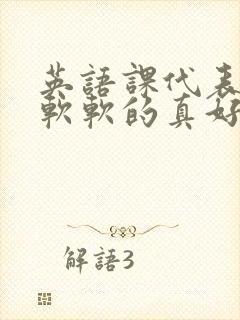 英語課代表
軟軟的真好
解語3